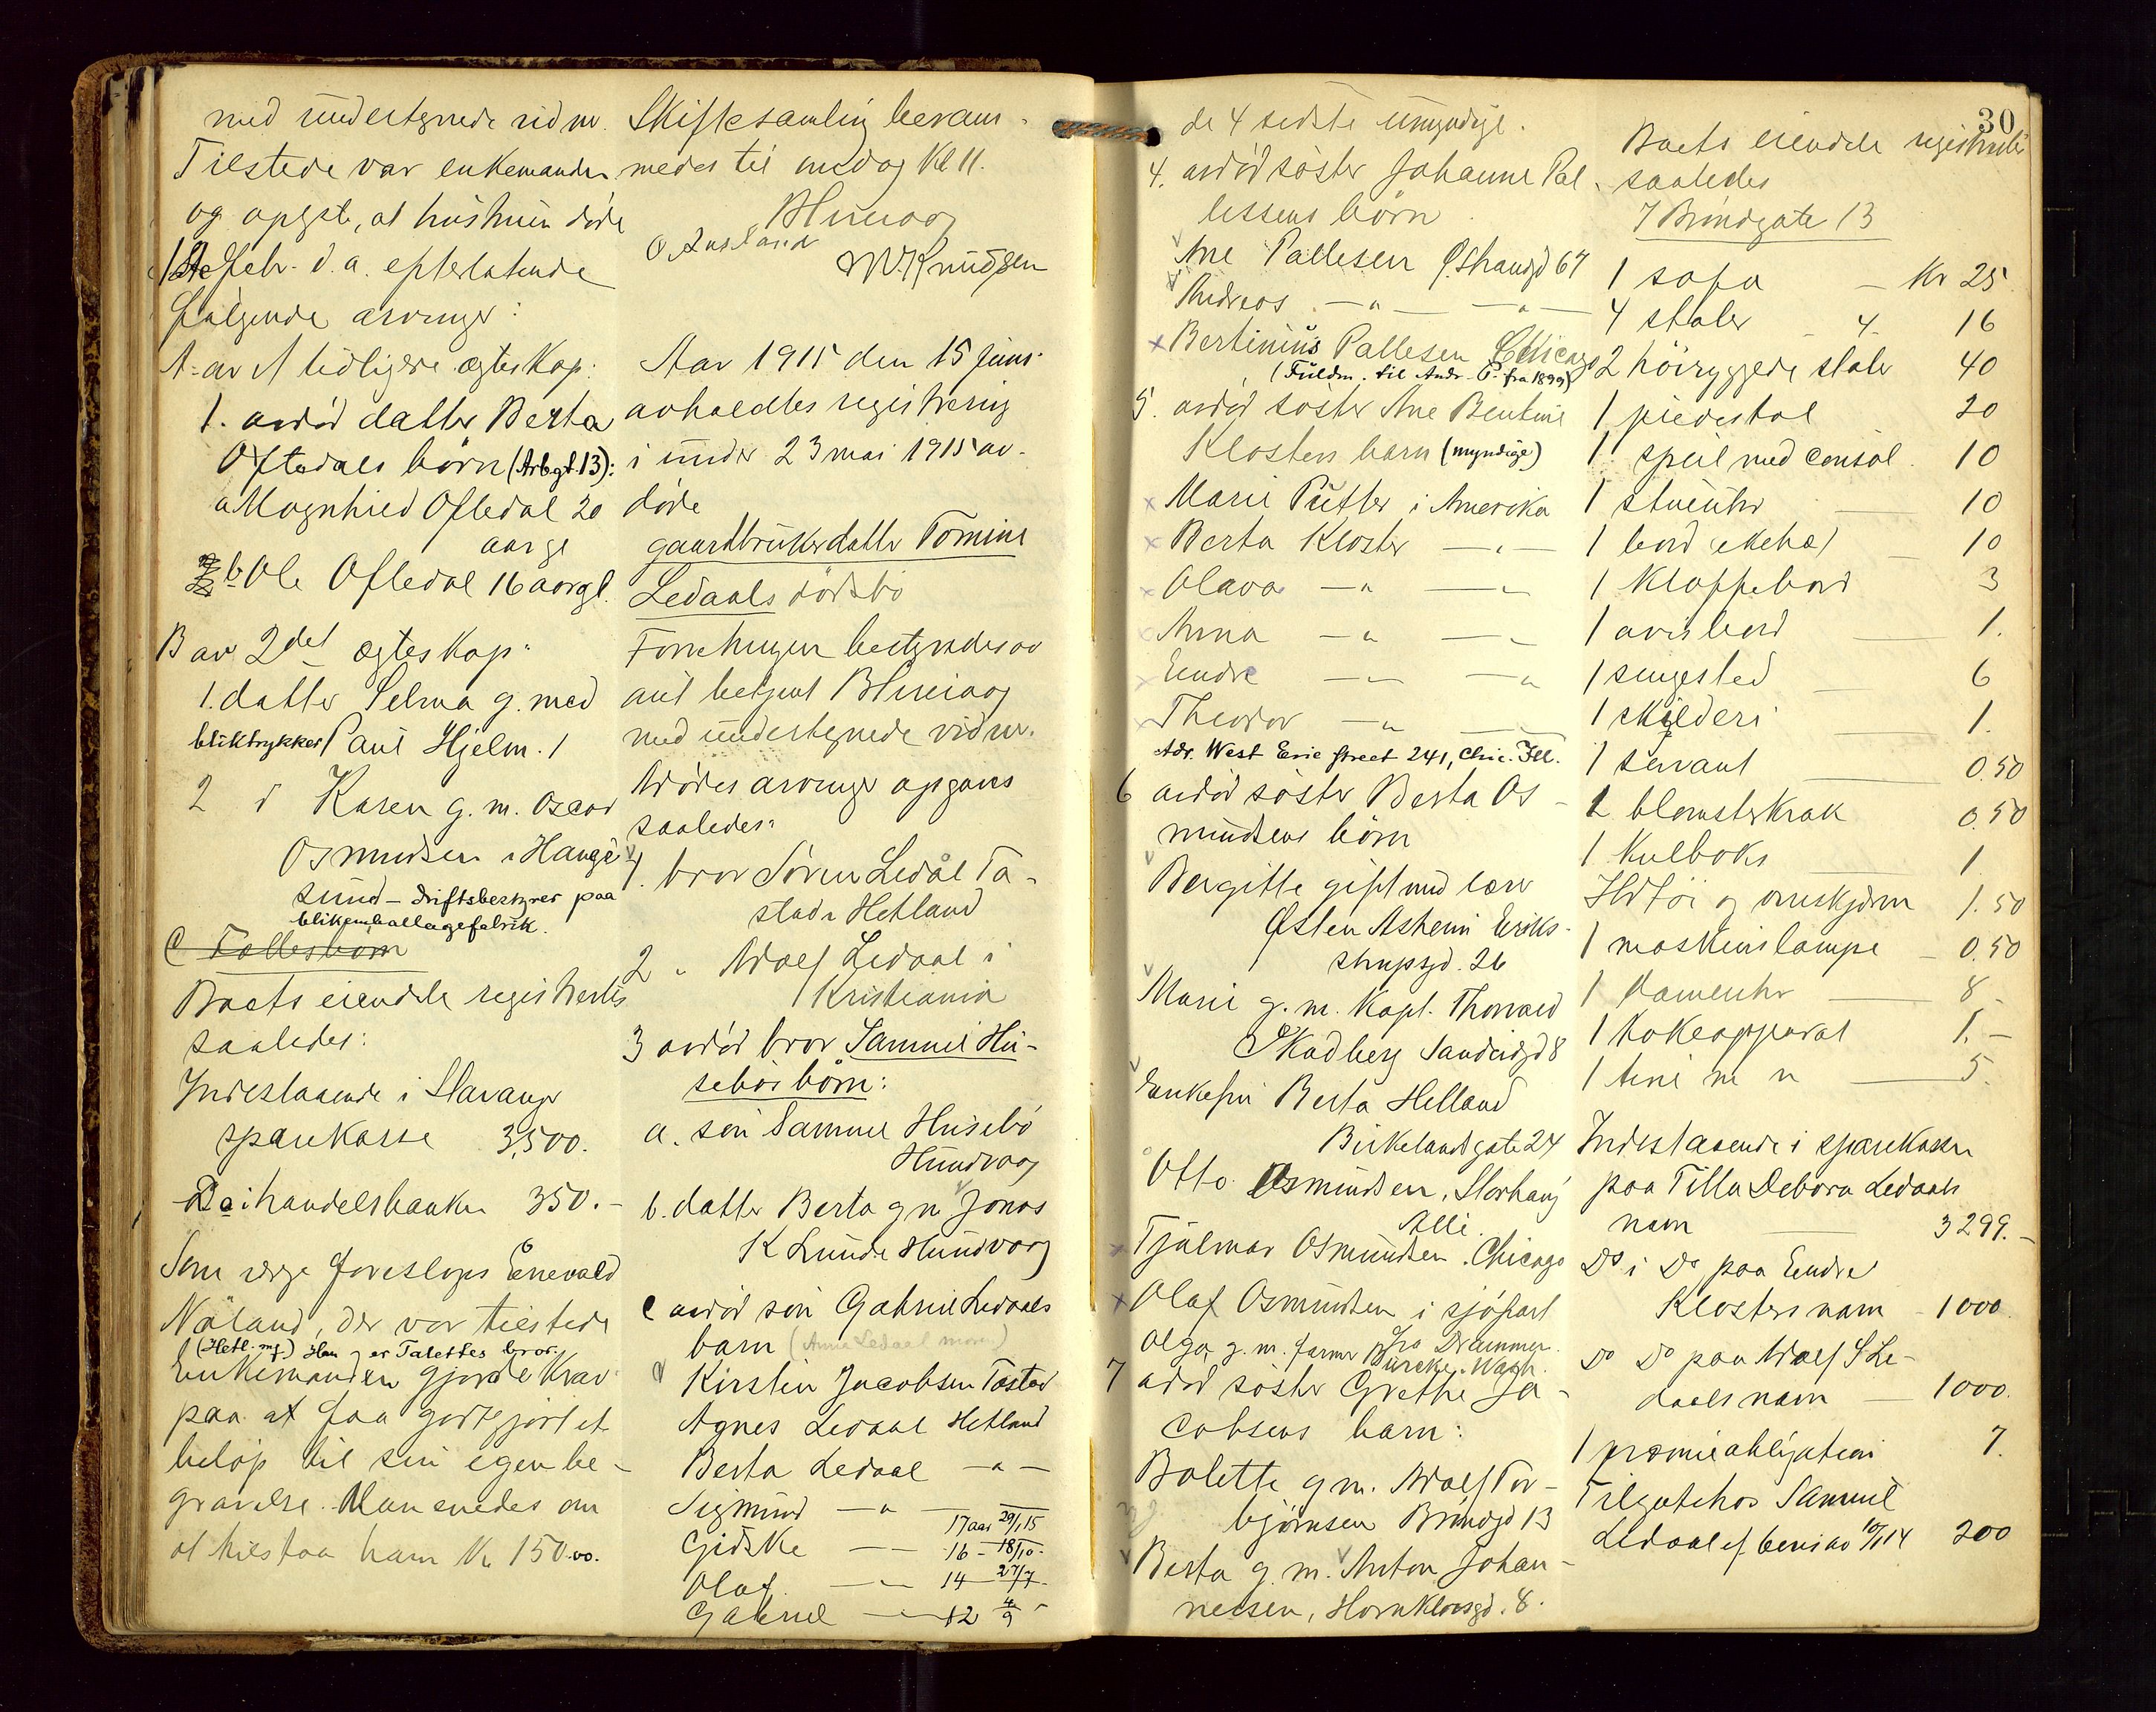 med undertegnede vidnr.
Tilstede var enkemanden
og opgst., at hustruen døde
1ste febr. d. a. efterlatende
følgende arvinger:
A. av 1 tidligere ægteskap:
1. avdød datter Berta
Oftedals børn (Arbgt. 13):
a Magnhild Oftedal 20
aar gl
b Ole Oftedal 16 aar gl.
B av 2det ægteskap:
1. datter Selma g. med
bliktrykker Paul Hjelm. 1
2 d Karen g. m. Oscar
Osmundsen i Hauge
sund - driftsbestyrer paa
blikemballagefabrik.
C Fællesbarn
Boets eiendele registrertes
saaledes:
Indestaaende i Stavanger
sparekasse 3,500.
Do i handelsbanken 350.-
Som verge foresloges Enevald
Næland, der var tilstede
(Hetl. mf.) Han er Talettes bror.
Enkemanden gjorde krav
paa at faa godtgjort et
beløp til sin egen be-
gravelse. Man enedes om
at tilstaa ham Kr 150.00.
Skiftesamling beram-
medes til onsdag Kl 11.
O. Ausland
W. Knudsen
Aar 1915 den 15 juni
avholdtes registrering
i under 23 mai 1915 av-
døde
gaardbrukerdatter Tomine
Ledaals dødsbo
Forretningen bestyredes av
aut betjent
med undertegnede vidnr.
Avdødes arvinger opgaves
saaledes:
1. bror Søren Ledål Ta-
stad i Hetland
2 " Adolf Ledaal i
Kristiania
3 avdød bror Samuel Hu-
sebøs børn:
a. søn Samuel Husebø
Hundvaag
b. datter Berta g m Jonas
K Lunde Hundvaag
c avdød søn Gabriel Ledaals
barn (Anna Ledaal mor)
Kirsten Jacobsen Tasted
Agnes Ledaal Hetland
Berta Ledaal - " -
Sigmund - " - 17 aar 29/1 15
Gidske - - 16 - 18/10 -
Olaf - " - 14 - 27/7 -
Gabriel - " - 12 4/9 -
30
de 4 sidste umyndige.
4. avdød søster Johanne Pal-
lesens børn
Ane Pallesen Ø. Strandgd 67
Andreas - " - - " -
Bertinius Pallesen Chicago
(Fuldm. til Andr. P. fra 1899)
5. avdød søster Ane Bentine
Klosters barn (myndige)
Marie Putter i Amerika
Berta Kloster - " -
Olava - " - - " -
Anna - " - - " -
Endre - " - - " -
Theodor - " - - " -
Adr. West Erie Street 241, Chic. Ill.
6 avdød søster Berta Os-
mundsens børn
Bergitte gift med lærer
Østen Asheim Eriks-
strupsgd. 26
Marie g. m. Kapt. Thorvald
Skadberg Sandeidgd 8
Enkefru Berta Helland
Birkelandsgate 24
Otto Osmundsen, Storhaug
Alle.
Hjalmar Osmundsen. Chicago
Olaf Osmundsen i sjøfart
Olga g. m. farmer fra Drammen
7 avdød søster Grethe Ja-
cobsens barn:
Bolette g m. Adolf Tor-
bjørnsen Brøndgd 13
Berta g. m. Anton Johan-
nessen, Hornklovsgd. 8.
Boets eiendele registrertes
saaledes
I Brøndgate 13
1 sofa - Kr 25
4 stoler - 4. 16
2 høiryggede stoler 40
1 piedestal 20
1 speil med consol 10
1 stueuhr 10
1 bord (eketræ) 10
1 klappebord 3
1 avisbord 1.
1 sengested 6
1 skilderi 1.
1 servant 0.50
2 blomsterkrak 0.50
1 kulboks 1
Ildtøi og ovnskjerm 1.50
1 maskinslampe 0.50
1 dameuhr 8 -
1 kokeapparat 1.-
1 tine m n 5.
Indestaaende i sparekassen
paa Tilla Debora Ledaals
navn 3299.-
Do i Do paa Endre
Klosters navn - 1000.
Do Do paa Adolf S Le-
daals navn - 1000.
1 præmieobligation 7.
Tilgode hos Samuel
Ledaal ef. bevis av 10/1 14 200